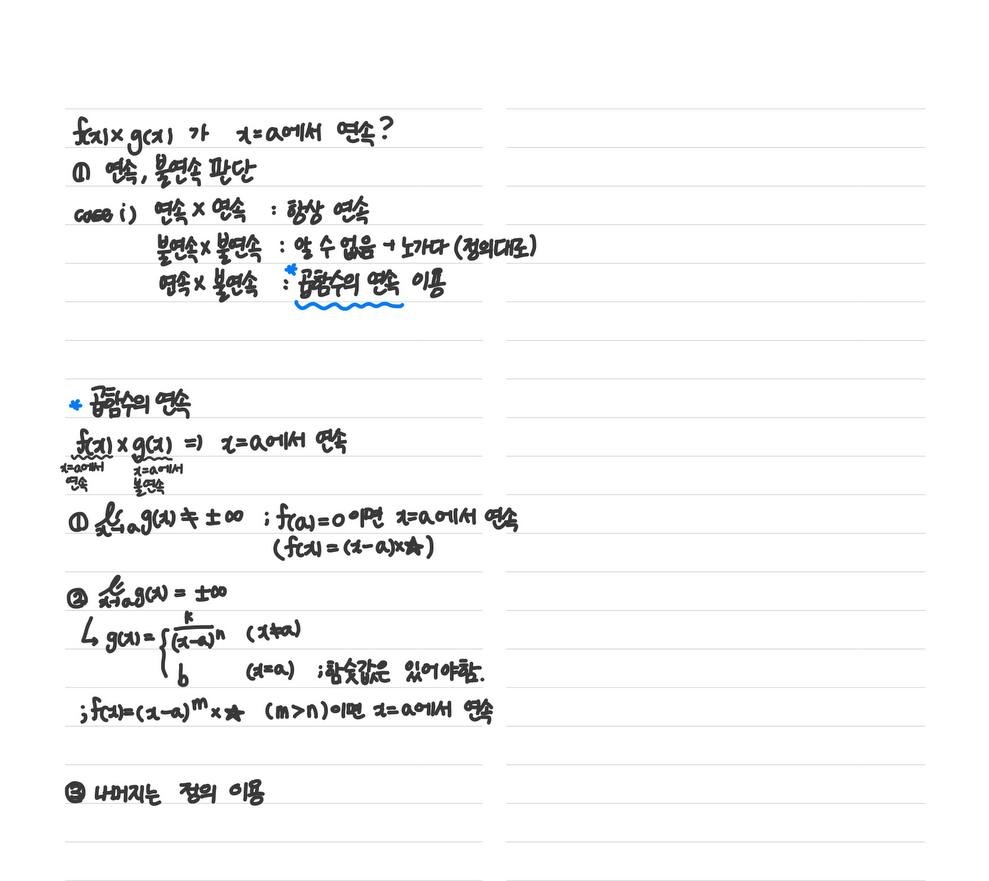 f(x)×g(x) 가 x=a에서 연속?
① 연속, 불연속 판단
case i) 연속 × 연속 : 항상 연속
불연속 × 불연속 : 알 수 없음 → 노가다 (정의대로)
연속 × 불연속 : *곱함수의 연속 이용
* 곱함수의 연속
f(x) × g(x) => x=a에서 연속
x=a에서 연속 x=a에서 불연속
① lim x→a g(x) ≠ ±∞ ; f(a)=0이면 x=a에서 연속
(f(x) = (x-a)×☆)
② lim x→a g(x) = ±∞
↳ g(x) = { k/(x-a)^n (x≠a)
b (x=a) ; 함숫값은 있어야함.
; f(x)=(x-a)^m × ☆ (m>n)이면 x=a에서 연속
③ 나머지는 정의 이용